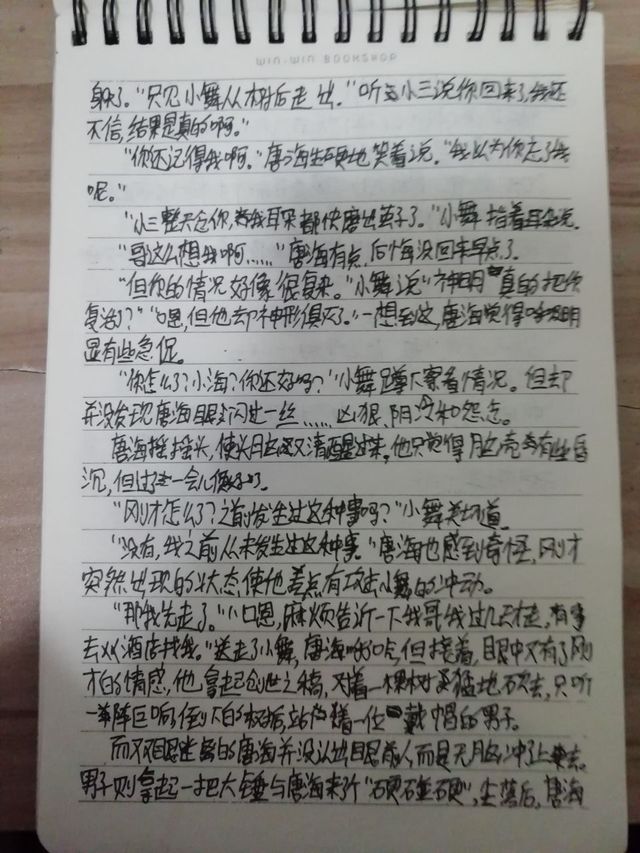 WIN-WIN BOOKSHOP
身了。"只见小舞从树后走出。"听小三说你回来了,我还
不信,结果是真的啊。"
"你还记得我啊。"唐海生硬地笑着说。"我以为你忘了我
呢。"
"小三整天念你,我耳朵都快磨出茧子了。"小舞指着耳朵说。
"哥这么想我啊……"唐海有点后悔没回来早点了。
"但你的情况好像很复杂。"小舞说"神明真的把你
复活了?""嗯,但他去却神形俱灭了。"一想到这,唐海觉得呼吸明
显有些急促。
"你怎么了?小海?你还好吗?"小舞蹲下察看情况。但却
并没发现唐海眼分闪过一丝……凶狠、阴冷和怨念。
唐海摇摇头,使头脑又清醒过来,他只觉得脑壳有些昏
沉,但过一会儿便好了。
"刚才怎么了?之前发生过这种事吗?"小舞关切道。
"没有,我之前从未发生过这种事。"唐海也感到奇怪,刚才
突然出现的状态,使他差点有攻击小舞的冲动。
"那我先走了。""嗯,麻烦告近一下我哥我过几天才走,有事
去XX酒店找我。"送走了小舞,唐海,但接着,眼中又有了刚
才的情感,他拿起创世之稿,对着一棵树猛地砍去,只听
一阵巨响,倒下的树后,站着一位戴帽的男子。
而双眼迷离的唐海并没认出眼前人,而是无脑冲了上去。
男子则拿起一把大锤与唐海来了个"硬碰硬",尘落后,唐海